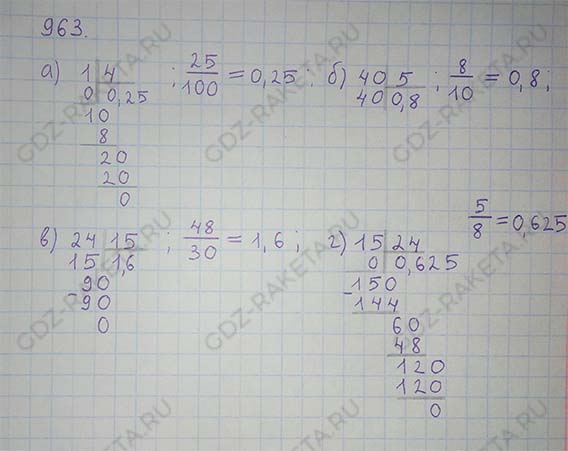 963.
а) 1 4 ; 25/100 = 0,25; б) 40 5 ; 8/10 = 0,8;
0 0,25 40 0,8
10
8
20
20
0
в) 24 15 ; 48/30 = 1,6; г) 15 24 5/8 = 0,625
15 1,6 0 0,625
90 150
-90 -144
0 60
48
120
120
0
GDZ-RAKETA.RU